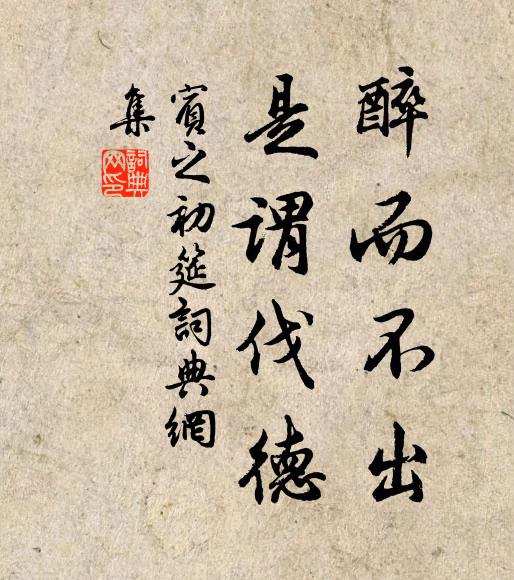 醉而不出
是謂伐德
賓之初筵詞典網
集
詞典
网印